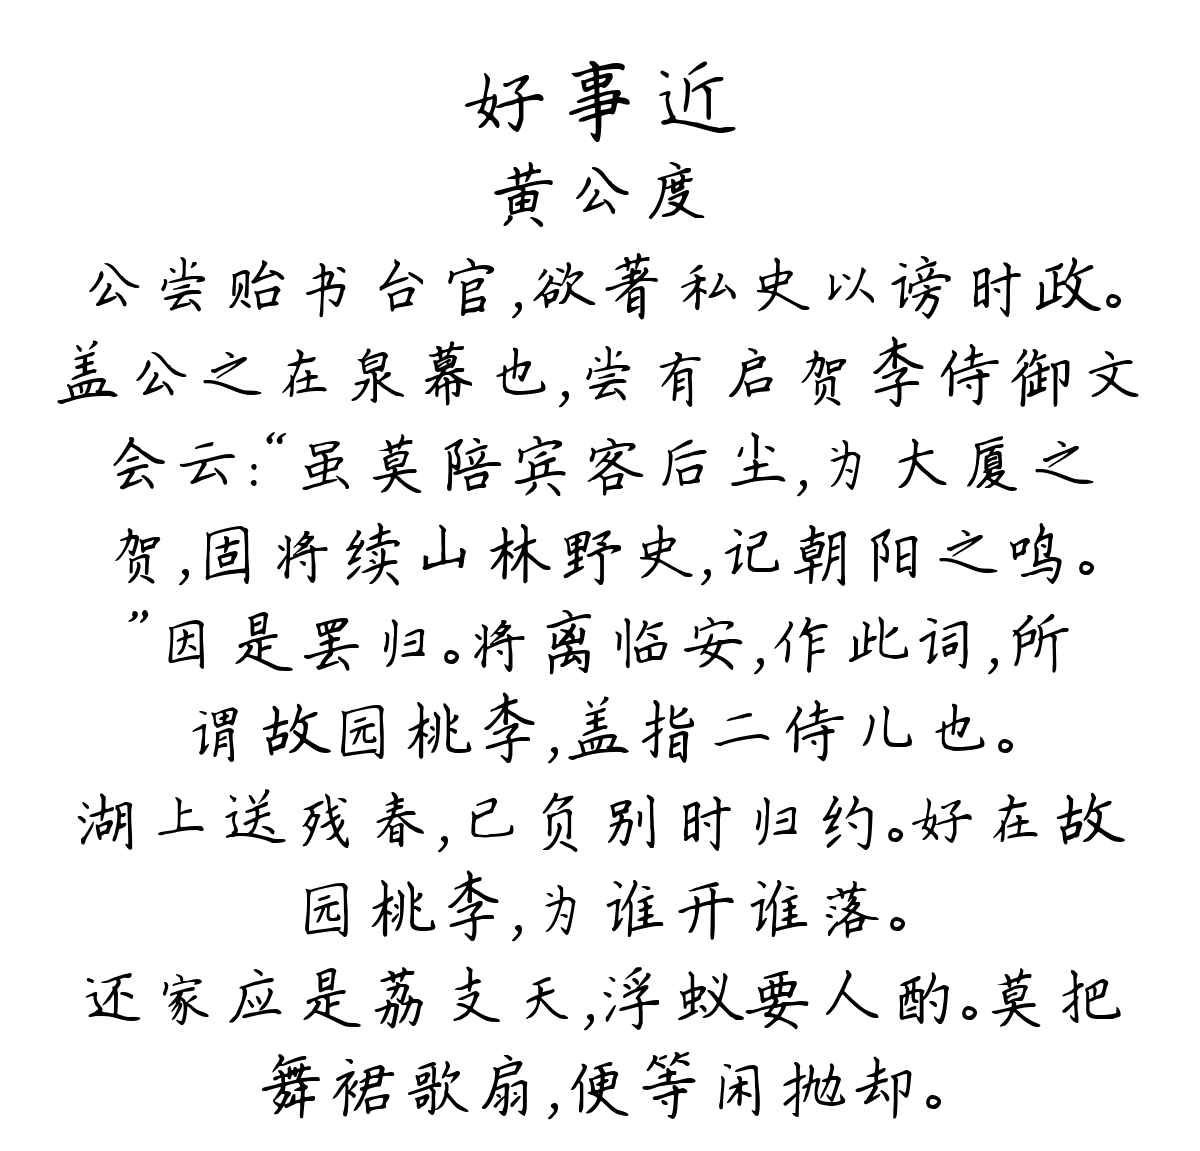 好事近
黄公度
公尝贻书台官,欲著私史以谤时政。
盖公之在泉幕也,尝有启贺李侍御文
会云:“虽莫陪宾客后尘,为大厦之
贺,固将续山林野史,记朝阳之鸣。
”因是罢归。将离临安,作此词,所
谓故园桃李,盖指二侍儿也。
湖上送残春,已负别时归约。好在故
园桃李,为谁开谁落。
还家应是荔支天,浮蚁要人酌。莫把
舞裙歌扇,便等闲抛却。